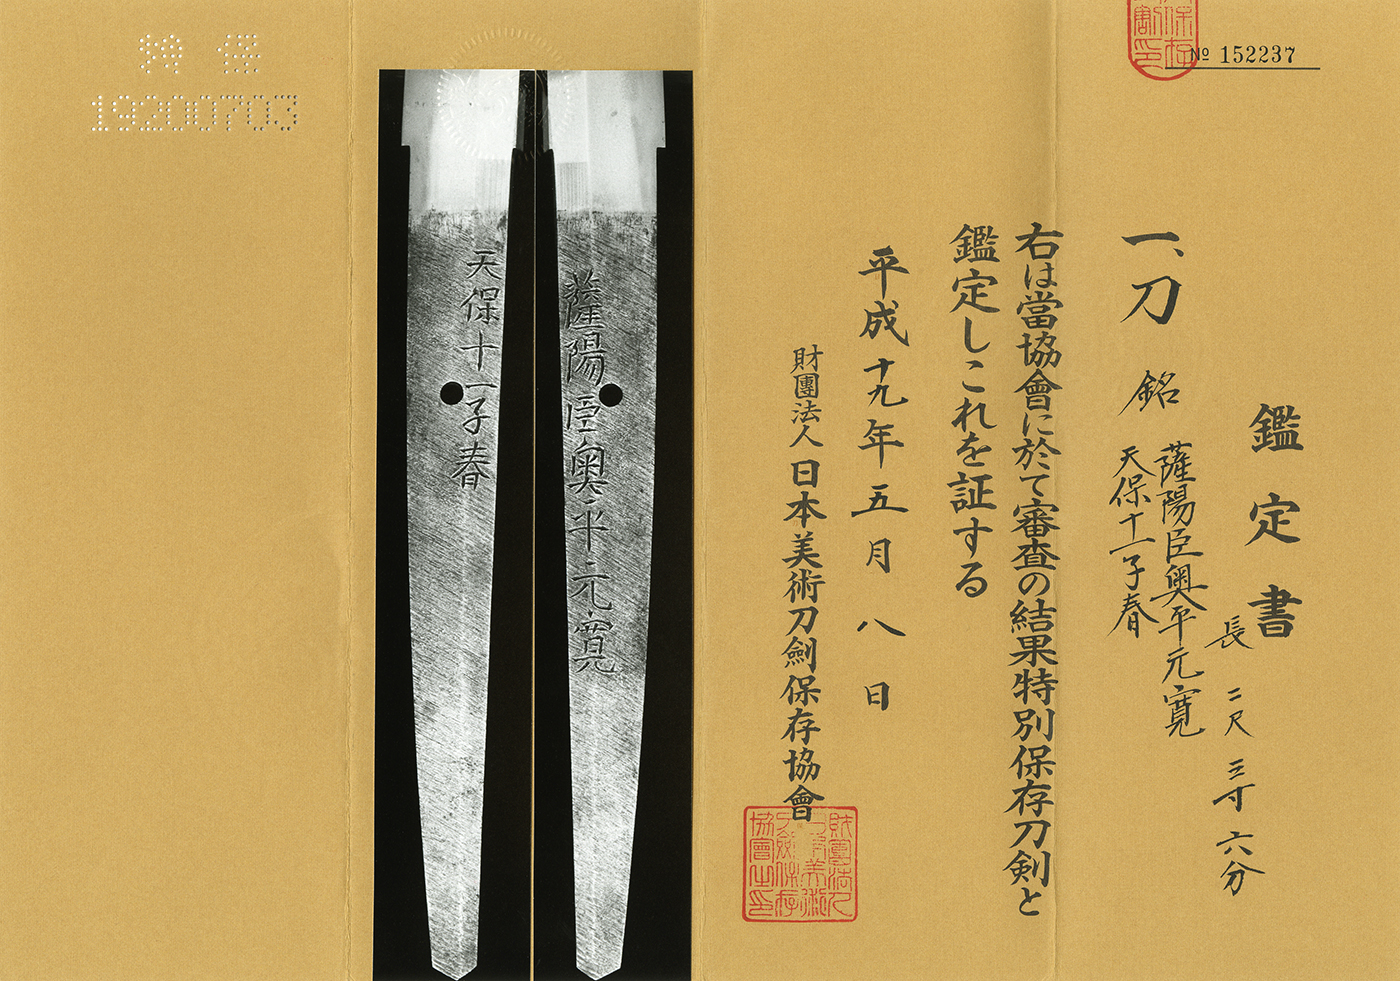 № 152237
鑑定書
長 二尺三寸六分
一、刀 銘
薩陽臣奥平元寛
天保十一子春
右は當協會に於て審査の結果特別保存刀剣と
鑑定しこれを証する
平成十九年五月八日
財團法人日本美術刀劍保存協會
薩陽臣奥平元寛
天保十一子春
特 保
19200703